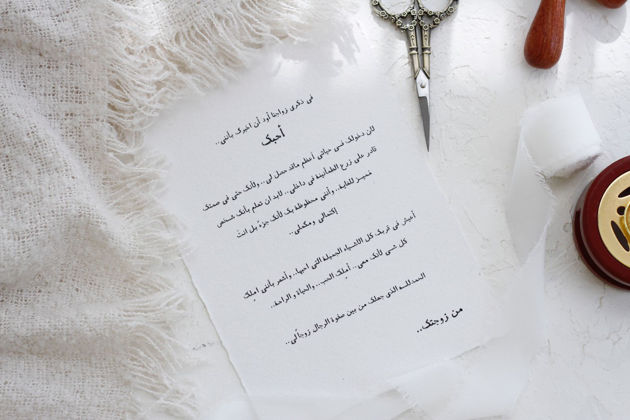 في ذكرى زواجنا أود أن اخبرك بأنني..
أحبك
لان دخولك في حياتي أعظم ماقد حصل لي.. ولأنك حتى في صمتك
قادر على زرع الطمأنينة في داخلي.. لابد ان تعلم بأنك شخص
مميز للغاية.. وأنني محظوظة بك لأنك جزء بل انت
إكتمالي ومكملي..
أعيش في قربك كل الأشياء الجميلة التي احبها.. وأشعر بأنني املك
كل شي لأنك معي.. أملك الحب.. والحياة والراحة..
الحمدلله الذي جعلك من بين صفوة الرجال زوجاً لي..
من زوجتك..